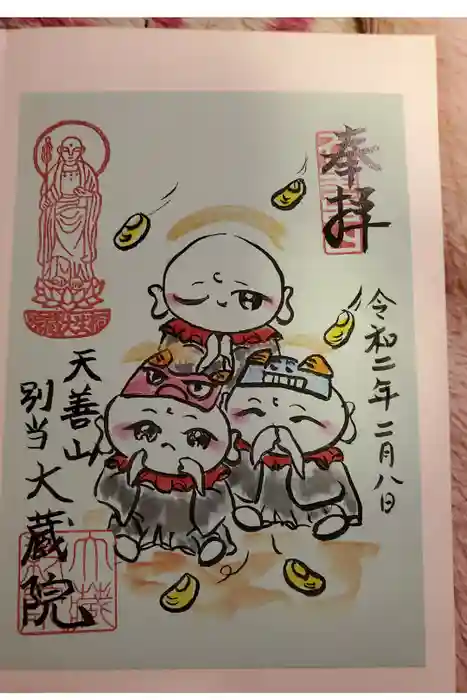 奉拝
令和二年二月八日
天善山
別当大蔵院